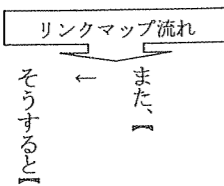 リンクマップ流れ
また、【
←
そうすると【